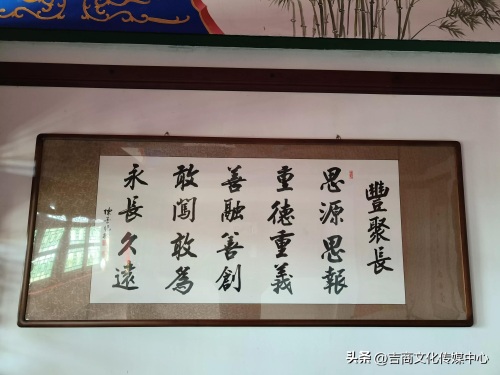 豐聚長
思源思報
重德重義
善融善創
敢闖敢為
永長久遠
头条@吉商文化传媒中心